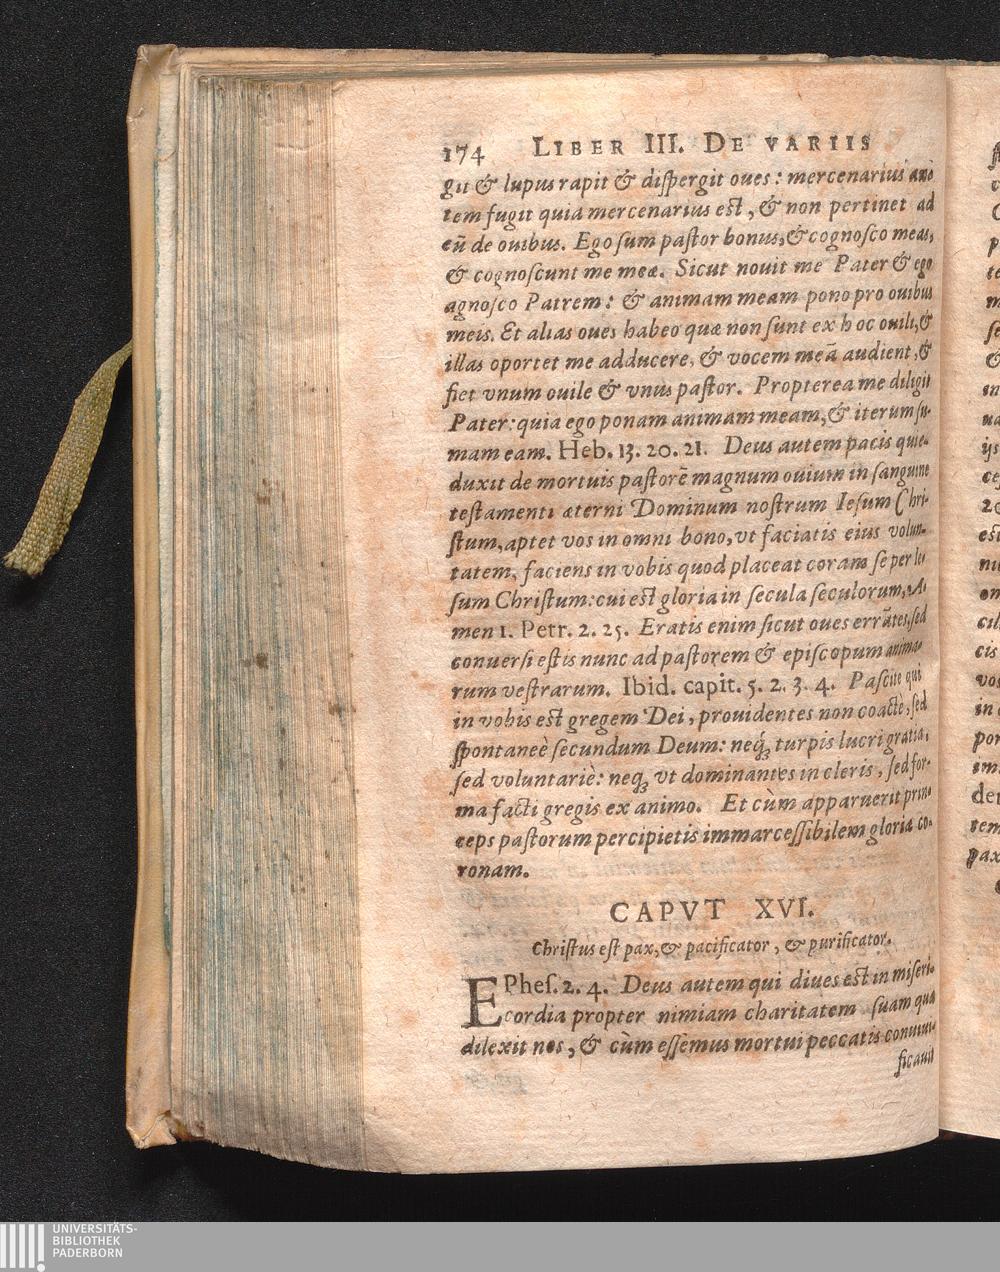 174 LIBER III. DE VARIIS
git & lupus rapit & diſpergit oues: mercenarius
tem fugit quia mercenarius eſt, & non pertinet ad
eū de ouibus. Ego ſum paſtor bonus, & cognoſco meas,
& cognoſcunt me meæ. Sicut nouit me Pater & ego
agnoſco Patrem: & animam meam pono pro ouibus
meis. Et alias oues habeo quæ non ſunt ex hoc ouili, &
illas oportet me adducere, & vocem meā audient, &
fiet vnum ouile & vnus paſtor. Propterea me diligit
Pater: quia ego ponam animam meam, & iterum ſu-
mam eam. Heb. 13. 20. 21. Deus autem pacis qui e-
duxit de mortuis paſtorē magnum ouium in ſanguine
teſtamenti æterni Dominum noſtrum Ieſum Chri-
ſtum, aptet vos in omni bono, vt faciatis eius volun-
tatem, faciens in vobis quod placeat coram ſe per Ie-
ſum Chriſtum: cui eſt gloria in ſecula ſeculorum, A-
men 1. Petr. 2. 25. Eratis enim ſicut oues errātes, ſed
conuerſi eſtis nunc ad paſtorem & epiſcopum anima-
rum veſtrarum. Ibid. capit. 5. 2. 3. 4. Paſcite qui
in vobis eſt gregem Dei, prouidentes non coactè, ſed
ſpontaneè ſecundum Deum: neq́ꝫ turpis lucri gratia,
ſed voluntariè: neqꝫ vt dominantes in cleris, ſed for-
ma facti gregis ex animo. Et cùm apparuerit prin-
ceps paſtorum percipietis immarceſſibilem gloriæ co-
ronam.
CAPVT XVI.
Chriſtus eſt pax, & pacificator, & purificator.
EPheſ. 2. 4. Deus autem qui diues eſt in miſeri-
cordia propter nimiam charitatem ſuam qua
dilexit nos, & cùm eſſemus mortui peccatis conuiui-
ficauit
UNIVERSITÄTS-
BIBLIOTHEK
PADERBORN